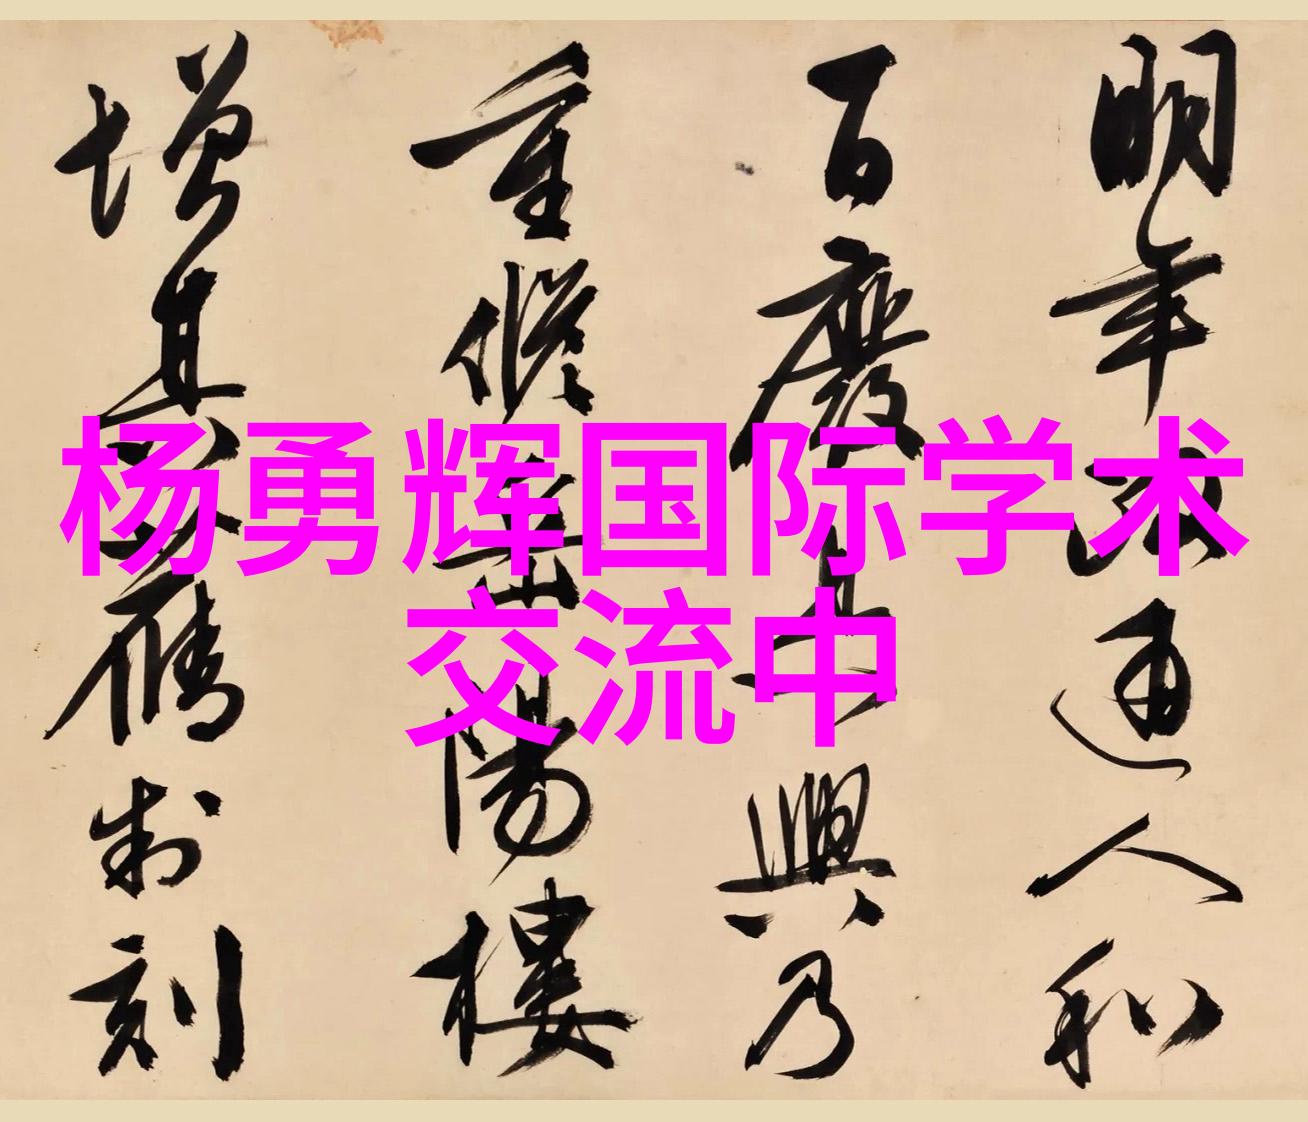 杨勇辉国际学术
交流中
明年政通人和
百廢具興乃
重脩岳陽樓
增其舊制刻